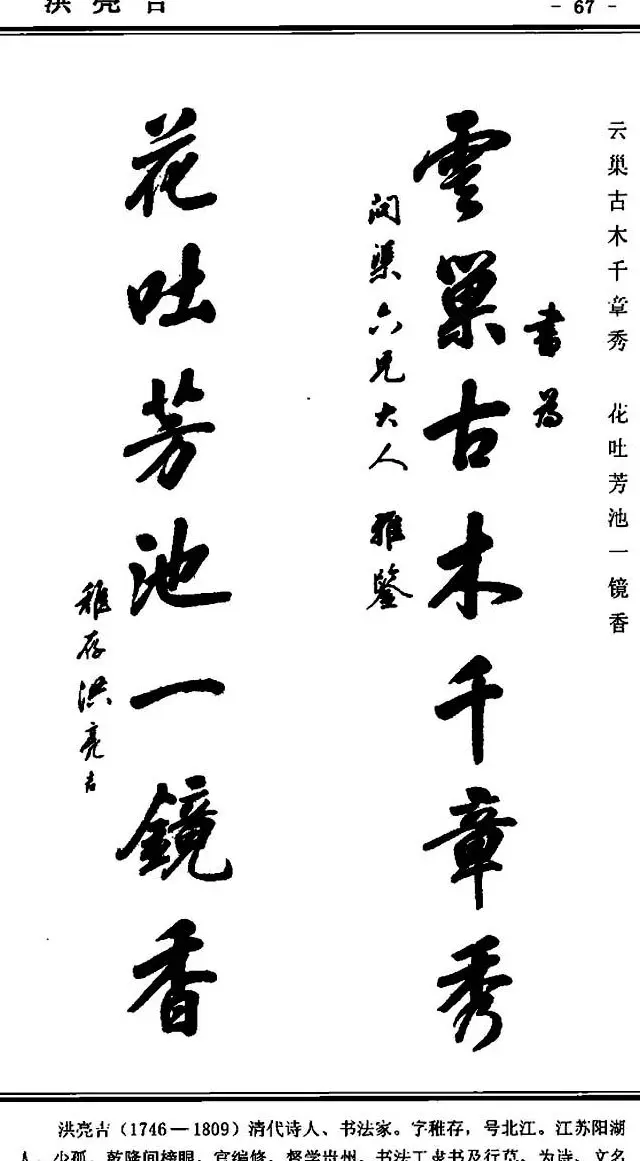 洪亮吉
- 67 -
云巢古木千章秀　花吐芳池一镜香
書为
雲巢古木千章秀
问渠六兄大人雅鑒
花吐芳池一鏡香
稚存洪亮吉
洪亮吉（1746—1809）清代诗人、书法家。字稚存，号北江。江苏阳湖
人。少孤，乾隆间榜眼，官编修，督学贵州，书法工隶书及行草。为诗、文名